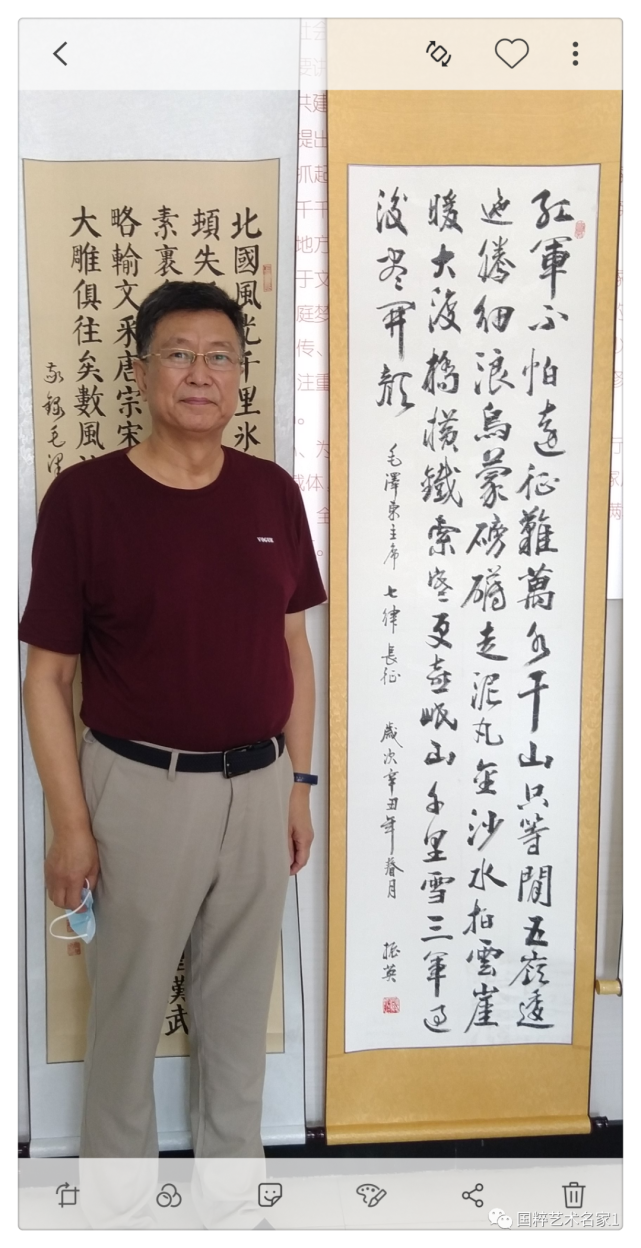 红軍不怕遠征難萬水千山只等閒五嶺逶
迤騰細浪烏蒙磅礴走泥丸金沙水拍雲崖
暖大渡橋橫鐵索寒更喜岷山千里雪三軍過
後盡開顏
毛澤東主席 七律 長征 歲次辛丑年春月 振英
北國風光千里冰
頓失
素裹
漢武
略輸文采唐宗宋
大雕俱往矣數風
敬録毛澤
共建
提出
抓起
千千
地方
于文
庭梦
传、
注重
载体
全
国粹艺术名家1